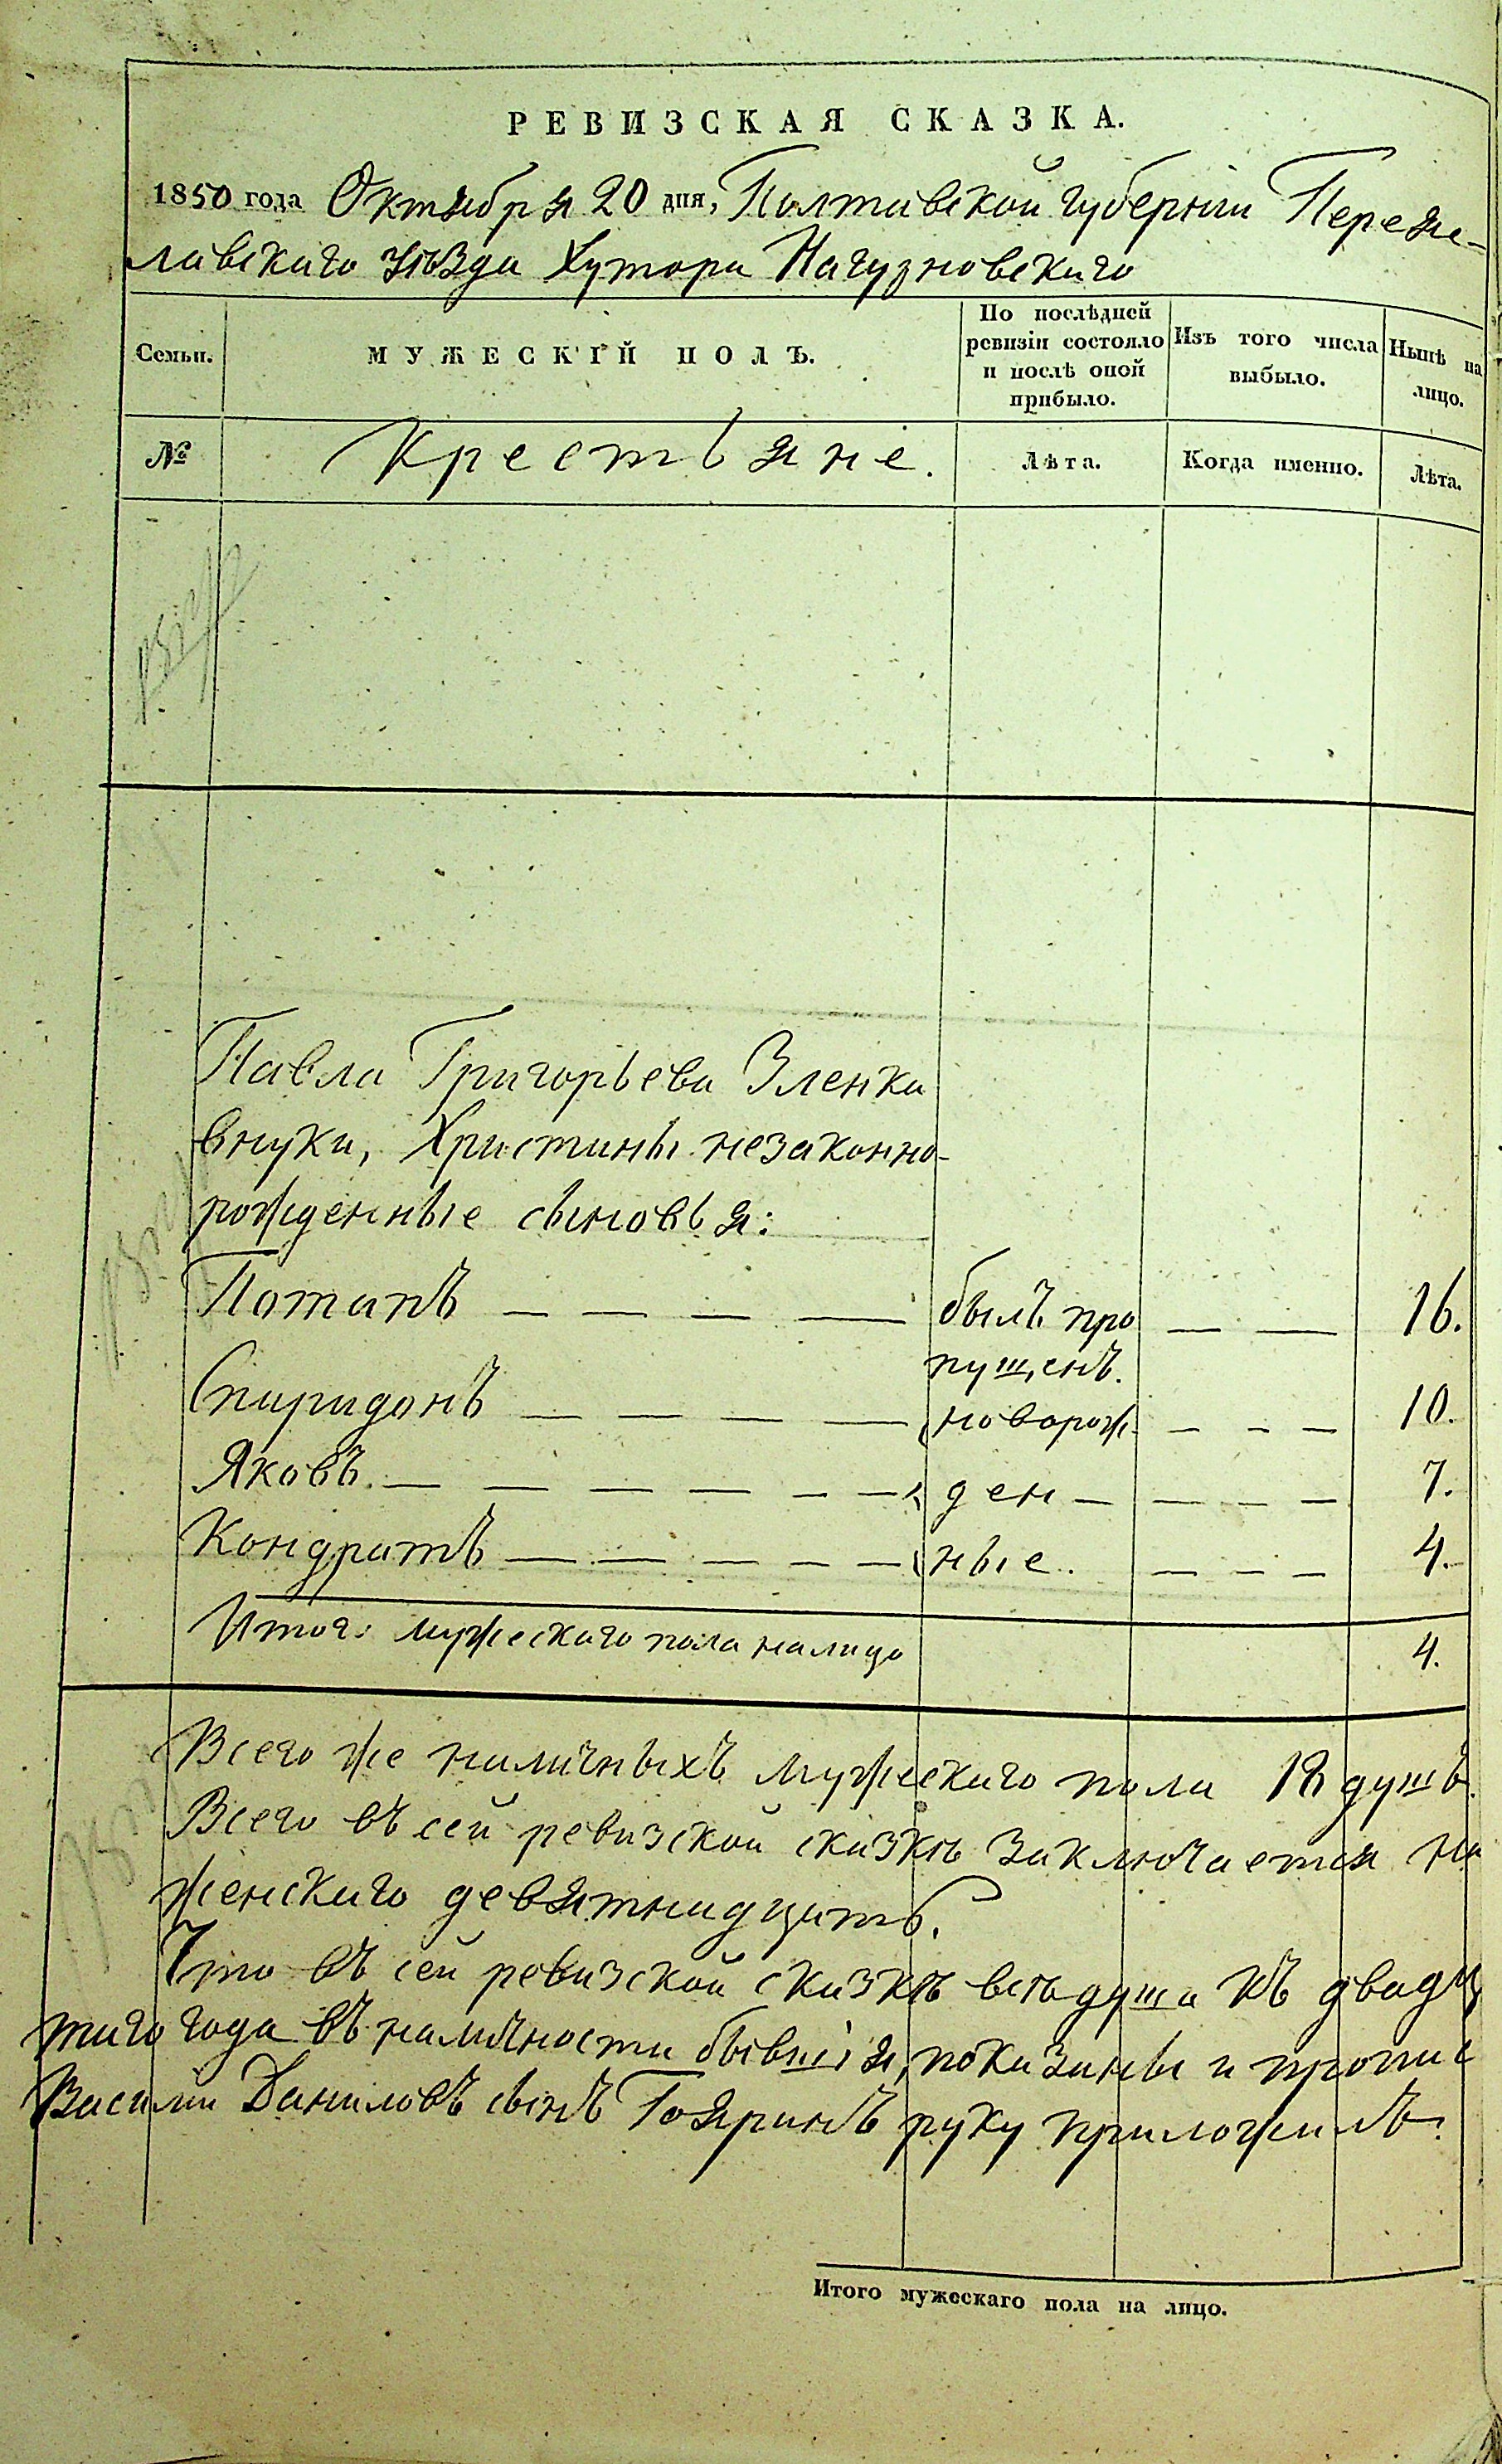 РЕВИЗСКАЯ СКАЗКА.
1850 года Октября 20 дня, Полтавской губерніи Перея-
славскаго уѣзда Хутора
Семьи.
МУЖЕСКІЙ ПОЛЪ.
По послѣдней
ревизіи состояло
и послѣ оной
прибыло.
Изъ того числа
выбыло.
Нынѣ на
лицо.
№
Крестьяне.
Лѣта.
Когда именно.
Лѣта.
Павла Григорьева Зленка
внуки, Христины незаконно-
рожденные сыновья:
Потапъ — — — — былъ про — — 16.
пущенъ.
Спиридонъ — — — — новорож — — — 10.
Яковъ. — — — — — — ден — — — — 7.
Кондратъ — — — — — ные. — — — 4.
Итого: мужескаго пола налицо 4.
Всего же наличныхъ мужескаго пола 18 душъ.
Всего въ сей ревизской сказкѣ заключается на
женскаго девятнадцать.
Что въ сей ревизской сказкѣ всѣ душа къ двадц
таго года въ наличности бывшія, показаны и пропис
Василій Даниловъ сынъ руку приложилъ.
Итого мужескаго пола на лицо.